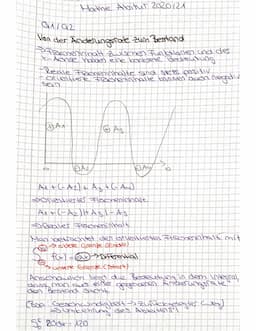 Mathe Abitur 2020/21
Q1/Q2
Von der Änderungsrate zum Bestand
⇒Flächeninhalt zwischen Funktionen und der
x-Achse haben eine konkrete Bedeutung
- Reale Flächeninhalte sind stets positiv
- orientierte Flächeninhalte können auch negativ
sein
A1
A2
A3
A4
A1 + (-A2) + A3 + (-A4)
⇒Orientierter Flächeninhalt
⇒Realer Flächeninhalt
Man bezeichnet den orientierten Flächeninhalt mit
→ obere Grenze (Ende)
f(x) dx → Differential
→ untere Grenze (Start)
Anschaulich liegt die Bedeutung in dem Integral
darin, man aus einer gegebenen Änderungsrate
den Bestand
(Bsp. Geschwindigkeit → zurückgelegter Weg)
⇒ Umkehrung des Ableitens!